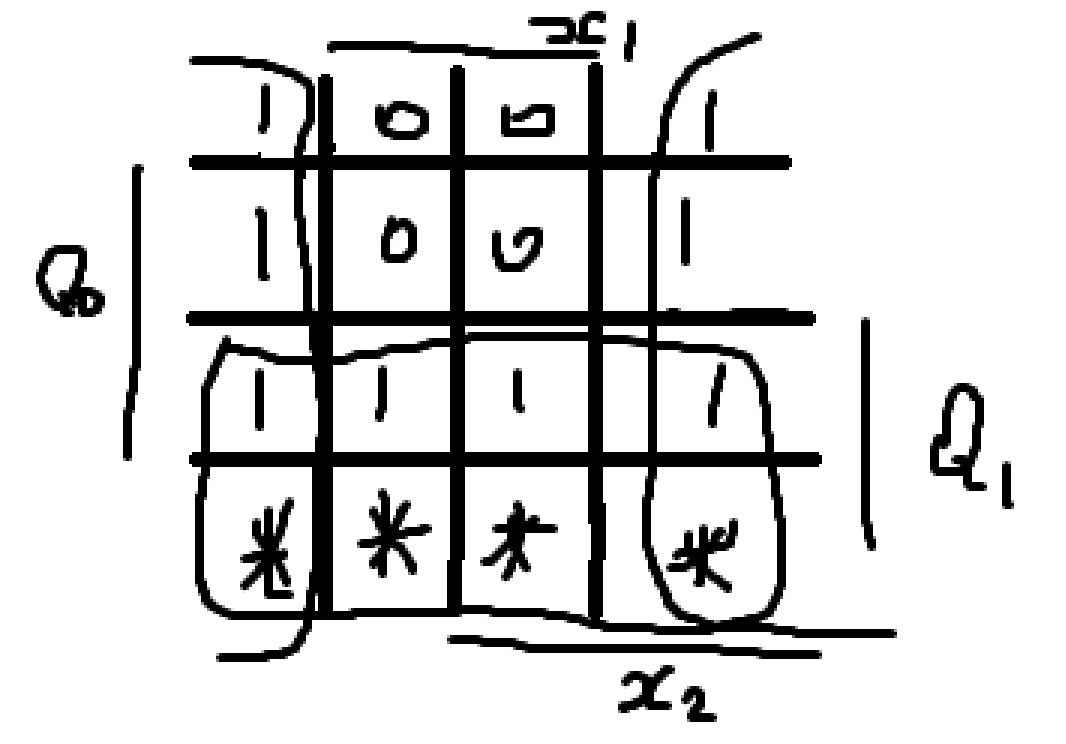 x1
1 0 0 1
Q0 1 0 0 1
1 1 1 1 Q1
* * * *
x2